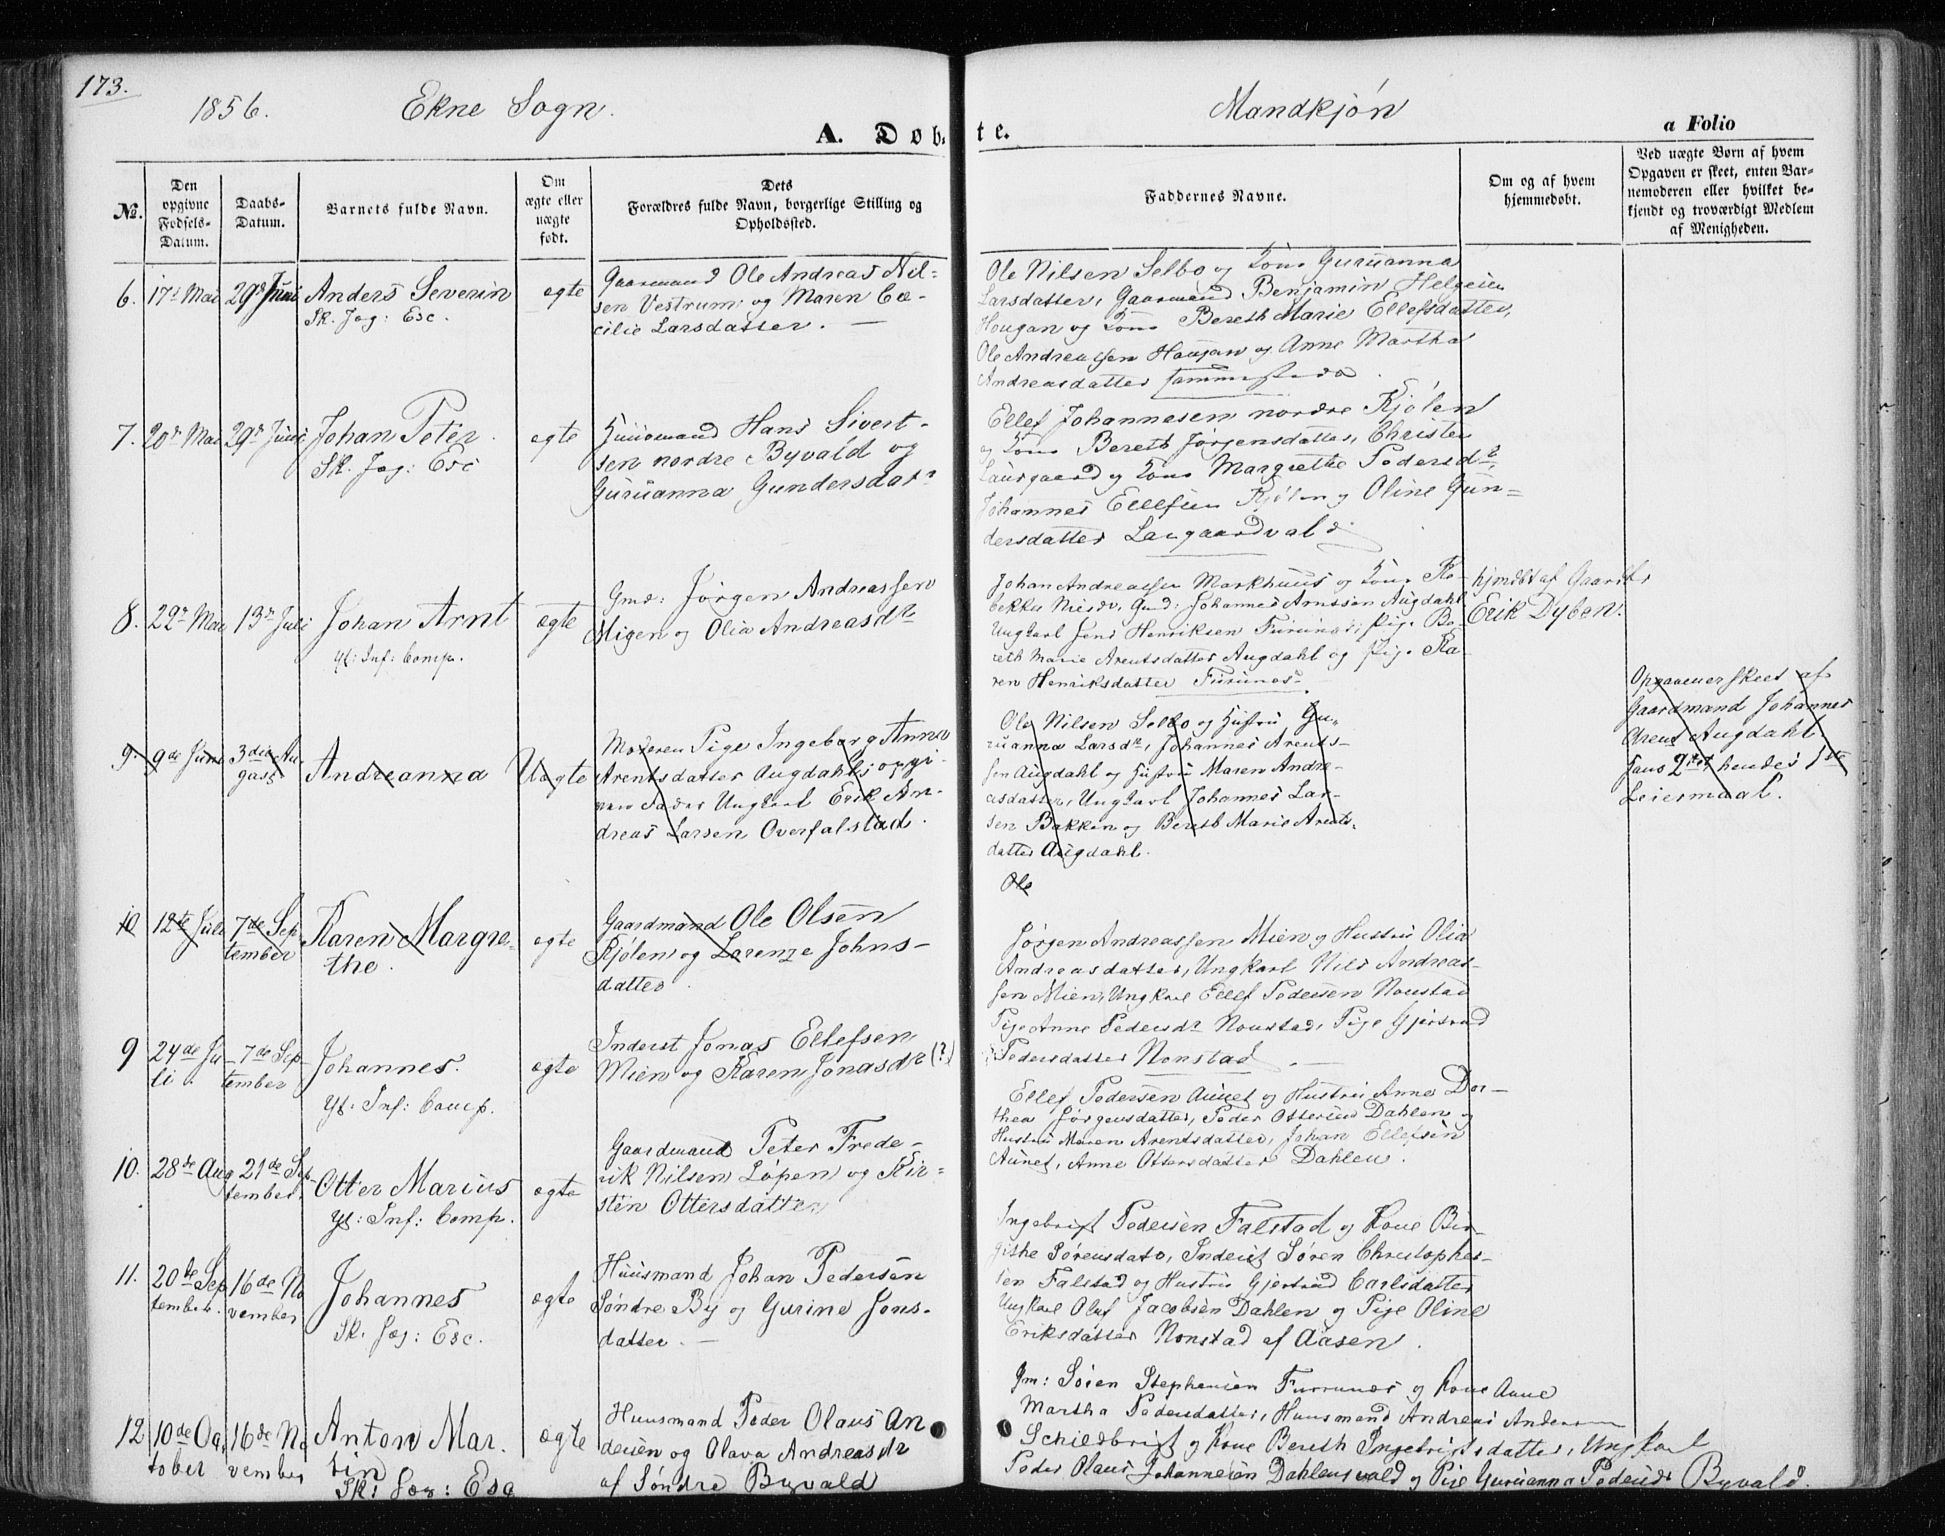 173.
1856. Ekne Sogn. Mandkjøn
A. Døbte. a Folio
No.
Den opgivne Fødsels-Datum.
Daabs-Datum.
Barnets fulde Navn.
Om ægte eller uægte født.
Dets Forældres fulde Navn, borgerlige Stilling og Opholdssted.
Faddernes Navne.
Om og af hvem hjemmedøbt.
Ved uægte Børn af hvem Opgaven er skeet, enten Barnemoderen eller hvilket bekjendt og troværdigt Medlem af Menigheden.
6. 17de Mai 29de Juni Anders Severin
Sk. Jag: Esc.
ægte
Gaarmand Ole Andreas Nil-
sen Vestrum og Maren Cæ-
cilie Larsdatter.
Ole Nilsen Selbo og Kone Guruanna
Larsdatter, Gaarmand Benjamin Helgesen
Hougan og Kone Bereth Marie Ellefsdatter,
Ole Andreassen Hougan og Anne Martha
Andreasdatter sammesteds.
7. 20de Mai 29de Juni Johan Peter.
Sk. Jag: Esc
ægte
Huusmand Hans Sivert-
sen nordre Byvald og
Guruanna Gundersdatr
Ellef Johannesen nordre Kjølen
og Kone Bereth Jørgensdatter, Christen
Laurgaard og Kone Margrethe Pedersdr,
Johannes Ellefsen Kjølen og Oline Gun-
dersdatter Laugaardvald
8. 22de Mai 13de Juli Johan Arnt
Yt: Inf: Comp.
ægte
Gmd: Jørgen Andreassen
Migen og Olia Andreasdtr
Johan Andreassen Markhuus og Kone Re-
bekka Nilsdr, Gmd: Johannes Arntsen Augdahl
Ungkarl Jens Henriksen Furunes, Pige Be-
reth Marie Arentsdatter Augdahl og Pige Ka-
ren Henriksdatter Furunes.
hjmdøbt af Gaardbr
Erik Dyben.
9. 9de Juni 3die Au-
gust
Andreanna
Uægte
Moderen Pige Ingeborg Anna
Arentsdatter Augdahls opgi-
ven Fader Ungkarl Erik An-
dreas Larsen Overfalstad.
Ole Nilsen Selbo og Hustru Gu-
ruanna Larsdr, Johannes Arents-
sen Augdahl og Hustru Maren Andre-
asdatter, Ungkarl Johannes Lar-
sen Bakken og Bereth Marie Arents-
datter Augdahl.
Ole
Opgaven er skeet af
Gaardmand Johannes
Arent Augdahl
hans 2det, hendes 1ste
Leiermaal.
10 12te Juli 7de Sep
tember
Karen Margre-
the.
ægte
Gaardmand Ole Olsen
Kjølen og Lorenze Johns-
datter.
9 24de Ju-
li.
7de Sep-
tember
Johannes.
Yt. Inf: Comp.
ægte
Inderst Jonas Ellefsen
Mien og Karen Jonasdr (?)
Jørgen Andreassen Mien og Hustru Olia
Andreasdatter, Ungkarl Nils Andreas-
sen Mien, Ungkarl Ellef Pedersen Nonstad
Pige Anne Pedersdr Nonstad, Pige Gjertrud
Pedersdatter Nonstad
10. 28de Aug 21de Sep-
tember.
Otter Marius
Yt: Inf: Comp.
ægte
Gaardmand Peter Frede-
rik Nilsen Løpen og Kir-
sten Ottersdatter
Ellef Pedersen Aunet og Hustru Anne Dor-
thea Jørgensdatter, Peder Ottersen Dahlen og
Hustru Maren Arentsdatter, Johan Ellefsen
Aunet, Anne Ottersdatter Dahlen.
11. 20de Sep
tember.
16de No
vember
Johannes
Sk. Jag: Esc.
ægte
Huusmand Johan Pedersen
Søndre By og Gurine Jons-
datter.
Ingebrigt Pedersen Falstad og Kone Bir-
githe Sørensdatr, Inderst Søren Christopher-
sen Falstad og Hustru Gjertrud Carlsdatter
Ungkarl Oluf Jacobsen Dahlen og Pige Oline
Eriksdatter Nonstad af Aasen.
12 10de Oc
tober
16de No
vember
Anton Mar-
tin
Sk: Jag: Esc
ægte
Huusmand Peder Olaus An
dersen og Olava Andreasdr
af Søndre Byvald
Gm: Søren Stephensen Furrunes og Kone Anne
Martha Pedersdatter, Huusmand Andreas Andersen
og Kone Bereth Ingebrigtsdatter, Ungkarl
Peder Olaus Johannesen Dahlensvald og Pige Guruanna Pedersdr Byvald.